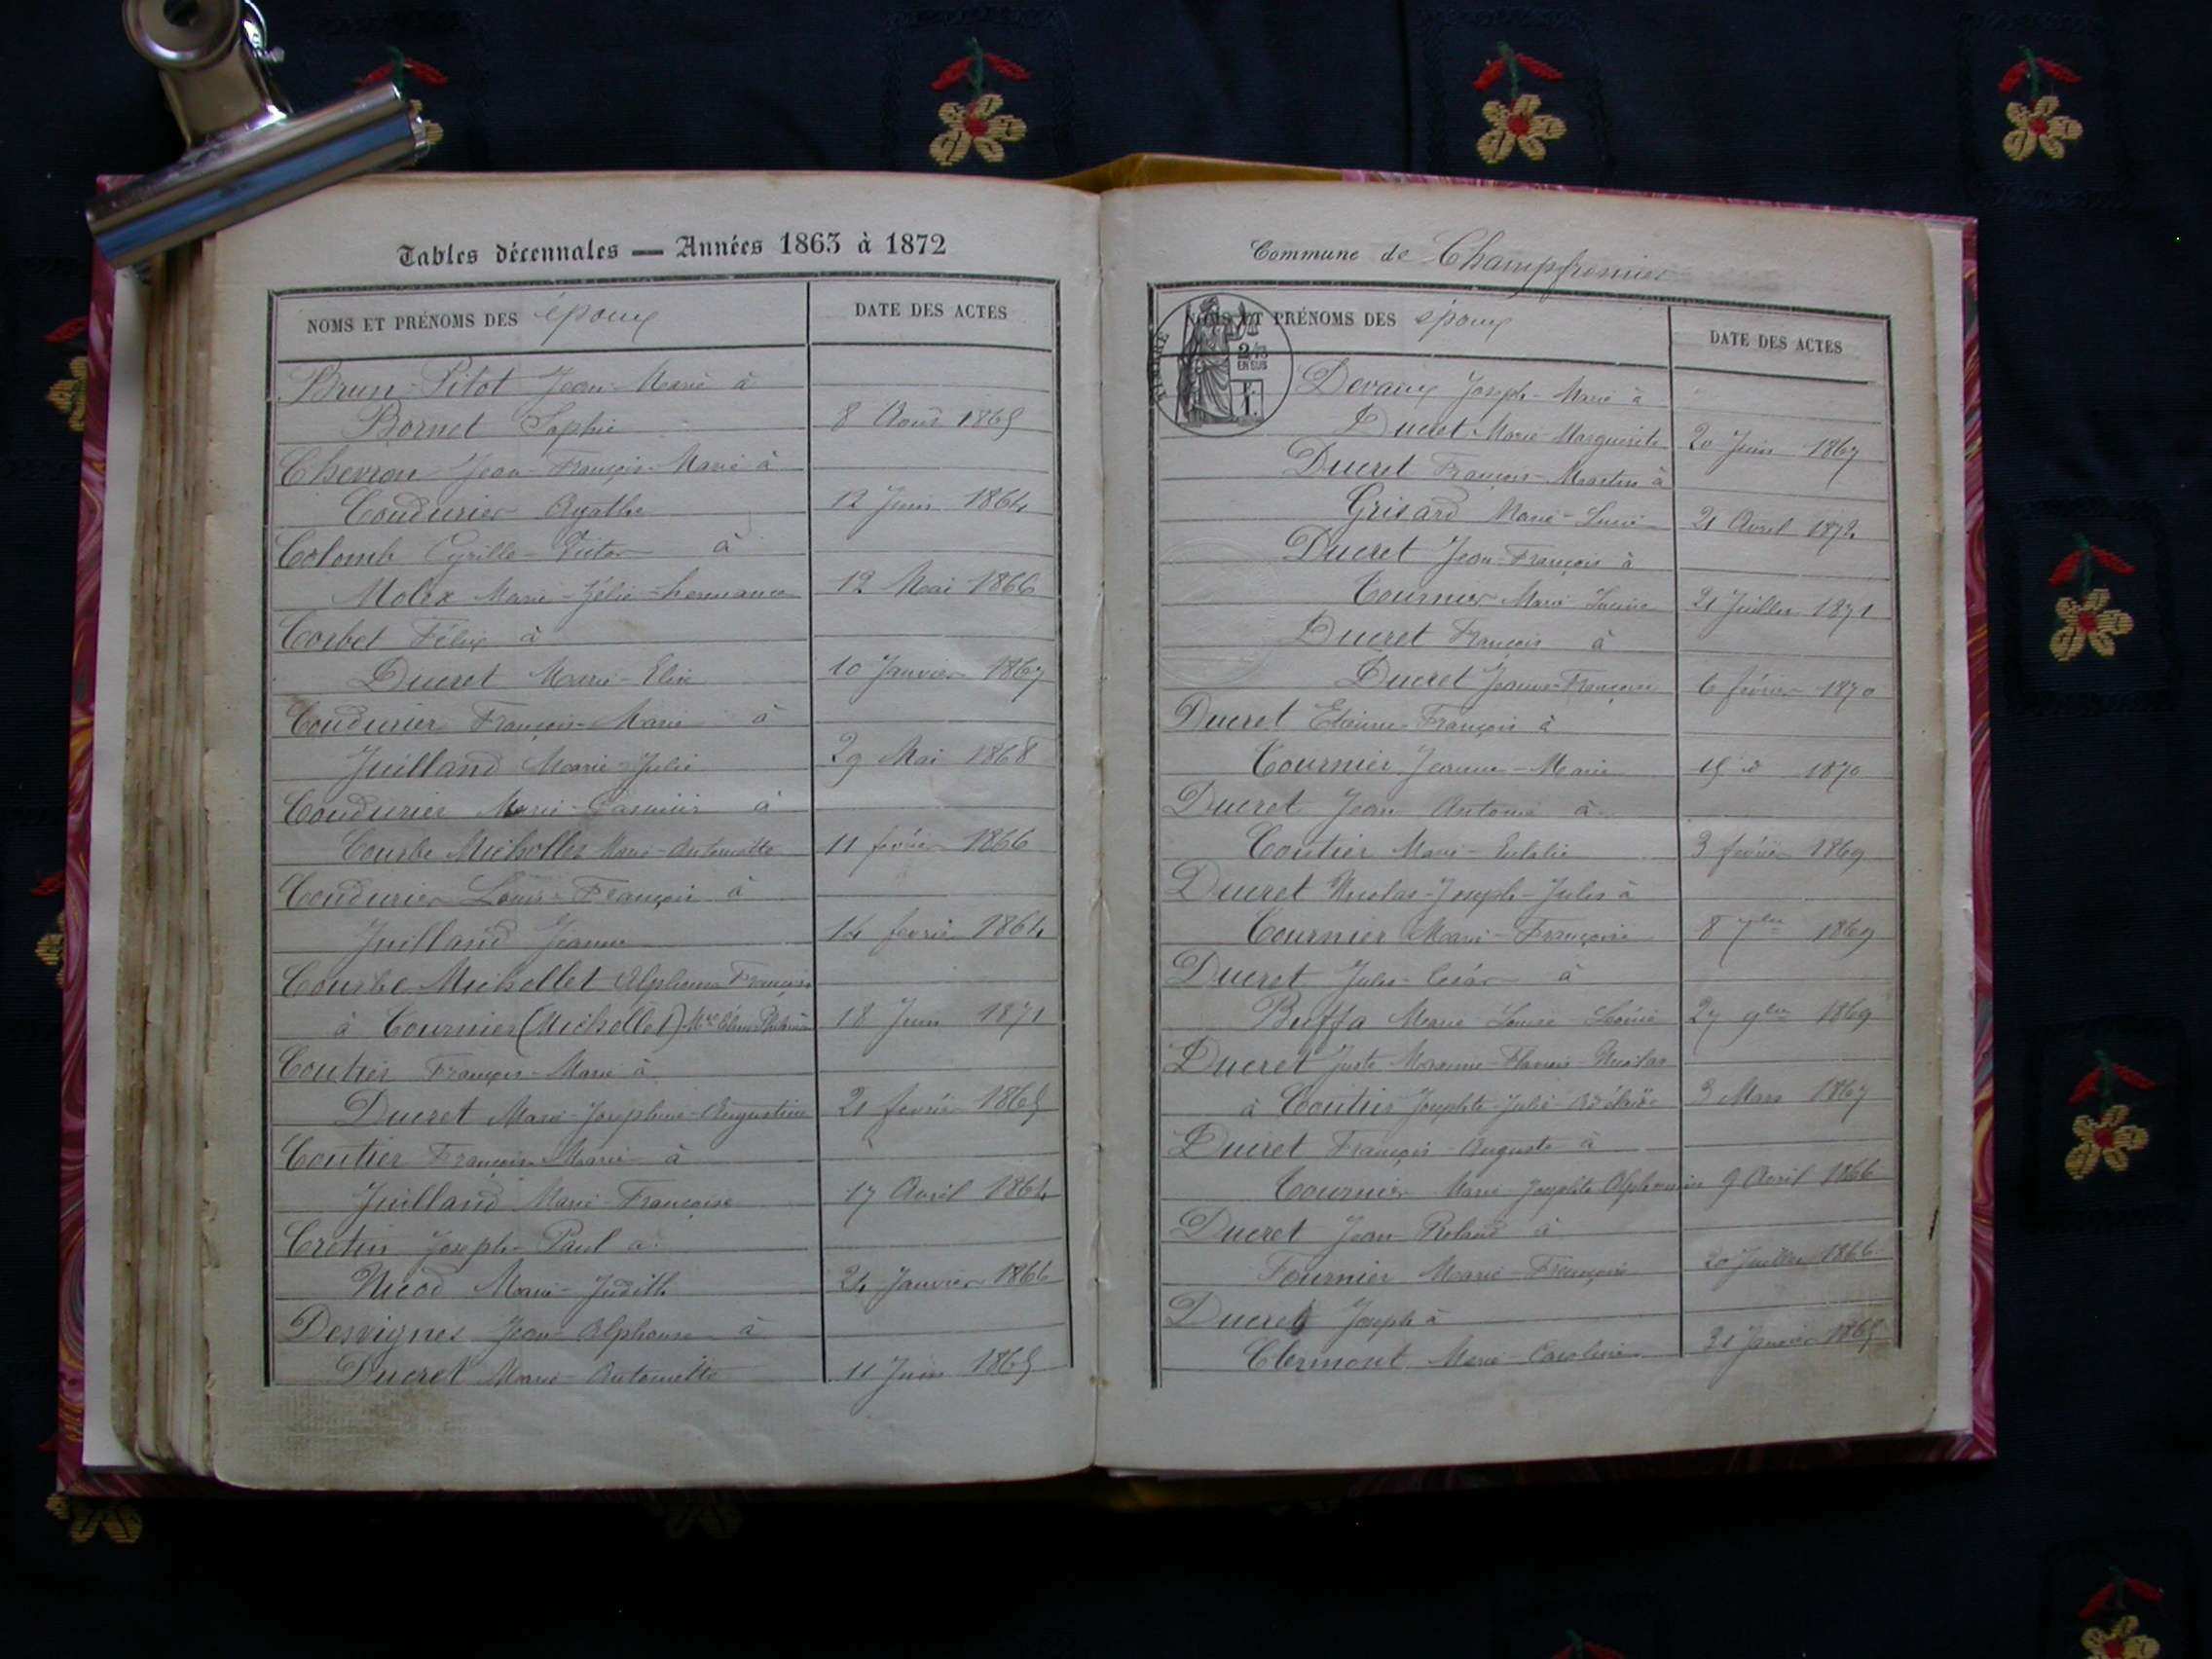 Tables décennales — Années 1863 à 1872
NOMS ET PRÉNOMS DES époux
DATE DES ACTES
Brun-Pitot Jean-Marie à
Bornet Sophie 8 Août 1865
Chevron Jean-François-Marie à
Coudurier Agathe 12 Juin 1864
Colomb Cyrille-Victor à
Molex Marie-Zélie-hermance 12 Mai 1866
Corbet Félix à
Ducret Marie-Elise 10 Janvier 1867
Coudurier François-Marie à
Juilland Marie-Julie 29 Mai 1868
Coudurier Marie-Casimir à
Courbe Michollet Marie-Antoinette 11 février 1866
Coudurier Louis-François à
Juilland Jeanne 14 février 1864
Courbe Michollet Alphonse François
à Tournier (Michollet) Mie 18 Juin 1871
Coutier François-Marie à
Ducret Marie-Josephine-Augustine 21 février 1865
Coutier François Marie à
Juilland Marie-Françoise 17 Avril 1864
Cretin Joseph-Paul à
Nicod Marie-Judith 24 Janvier 1866
Desvignes Jean Alphonse à
Ducret Marie-Antoinette 11 Juin 1865
Commune de Champfromier
NOMS ET PRÉNOMS DES époux
DATE DES ACTES
TIMBRE
2/10
EN SUS
Devaux Joseph-Marie à
Ducret Marie-Marguerite 20 Juin 1867
Ducret François-Martin à
Grisard Marie-Louise 21 Avril 1872
Ducret Jean-François à
Tournier Marie 21 Juillet 1871
Ducret François à
Ducret Jeanne-Françoise 6 février 1870
Ducret Etienne-François à
Tournier Jeanne-Marie 15 id 1870
Ducret Jean Antoine à
Coutier Marie-Eulalie 3 février 1869
Ducret Nicolas-Joseph-Jules à
Tournier Marie-Françoise 8 7bre 1869
Ducret Jules-César à
Buffa Marie Louise Léonie 27 9bre 1869
Ducret Juste Maxime-François-Nicolas
à Coutier Josephte-Julie-Adélaïde 3 Mars 1867
Ducret François-Auguste à
Tournier Marie Josephte Alphonsine 9 Avril 1866
Ducret Jean-Roland à
Tournier Marie-Françoise 20 Juillet 1866
Ducret Joseph à
Clermont Marie-Caroline 31 Janvier 1865